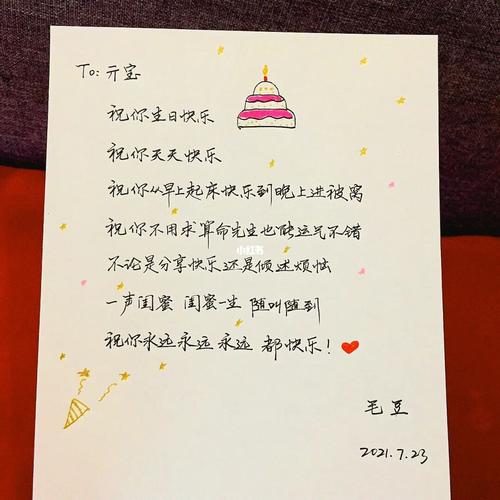 To: 亓宝
祝你生日快乐
祝你天天快乐
祝你从早上起床快乐到晚上进被窝
祝你不用求算命先生也能运气不错
小红书
不论是分享快乐还是倾述烦恼
一声闺蜜 闺蜜一生 随叫随到
祝你永远永远永远 都快乐!
毛豆
2021.7.23